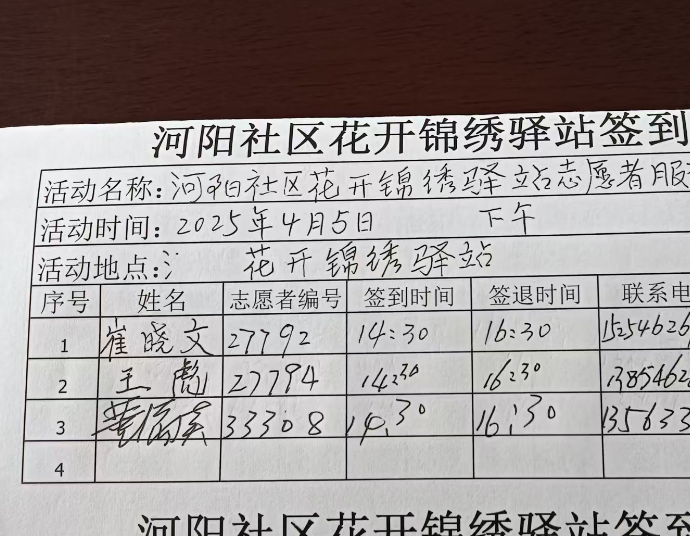 河阳社区花开锦绣驿站签到
活动名称:河阳社区花开锦绣驿站志愿者服
活动时间:2025年4月5日 下午
活动地点: 花开锦绣驿站
序号 姓名 志愿者编号 签到时间 签退时间 联系电
1 崔晓文 27792 14:30 16:30 15254626
2 王彪 27794 14:30 16:30 1385462
3 33308 14:30 16:30 135633
4
河阳社区花开锦绣驿站签到